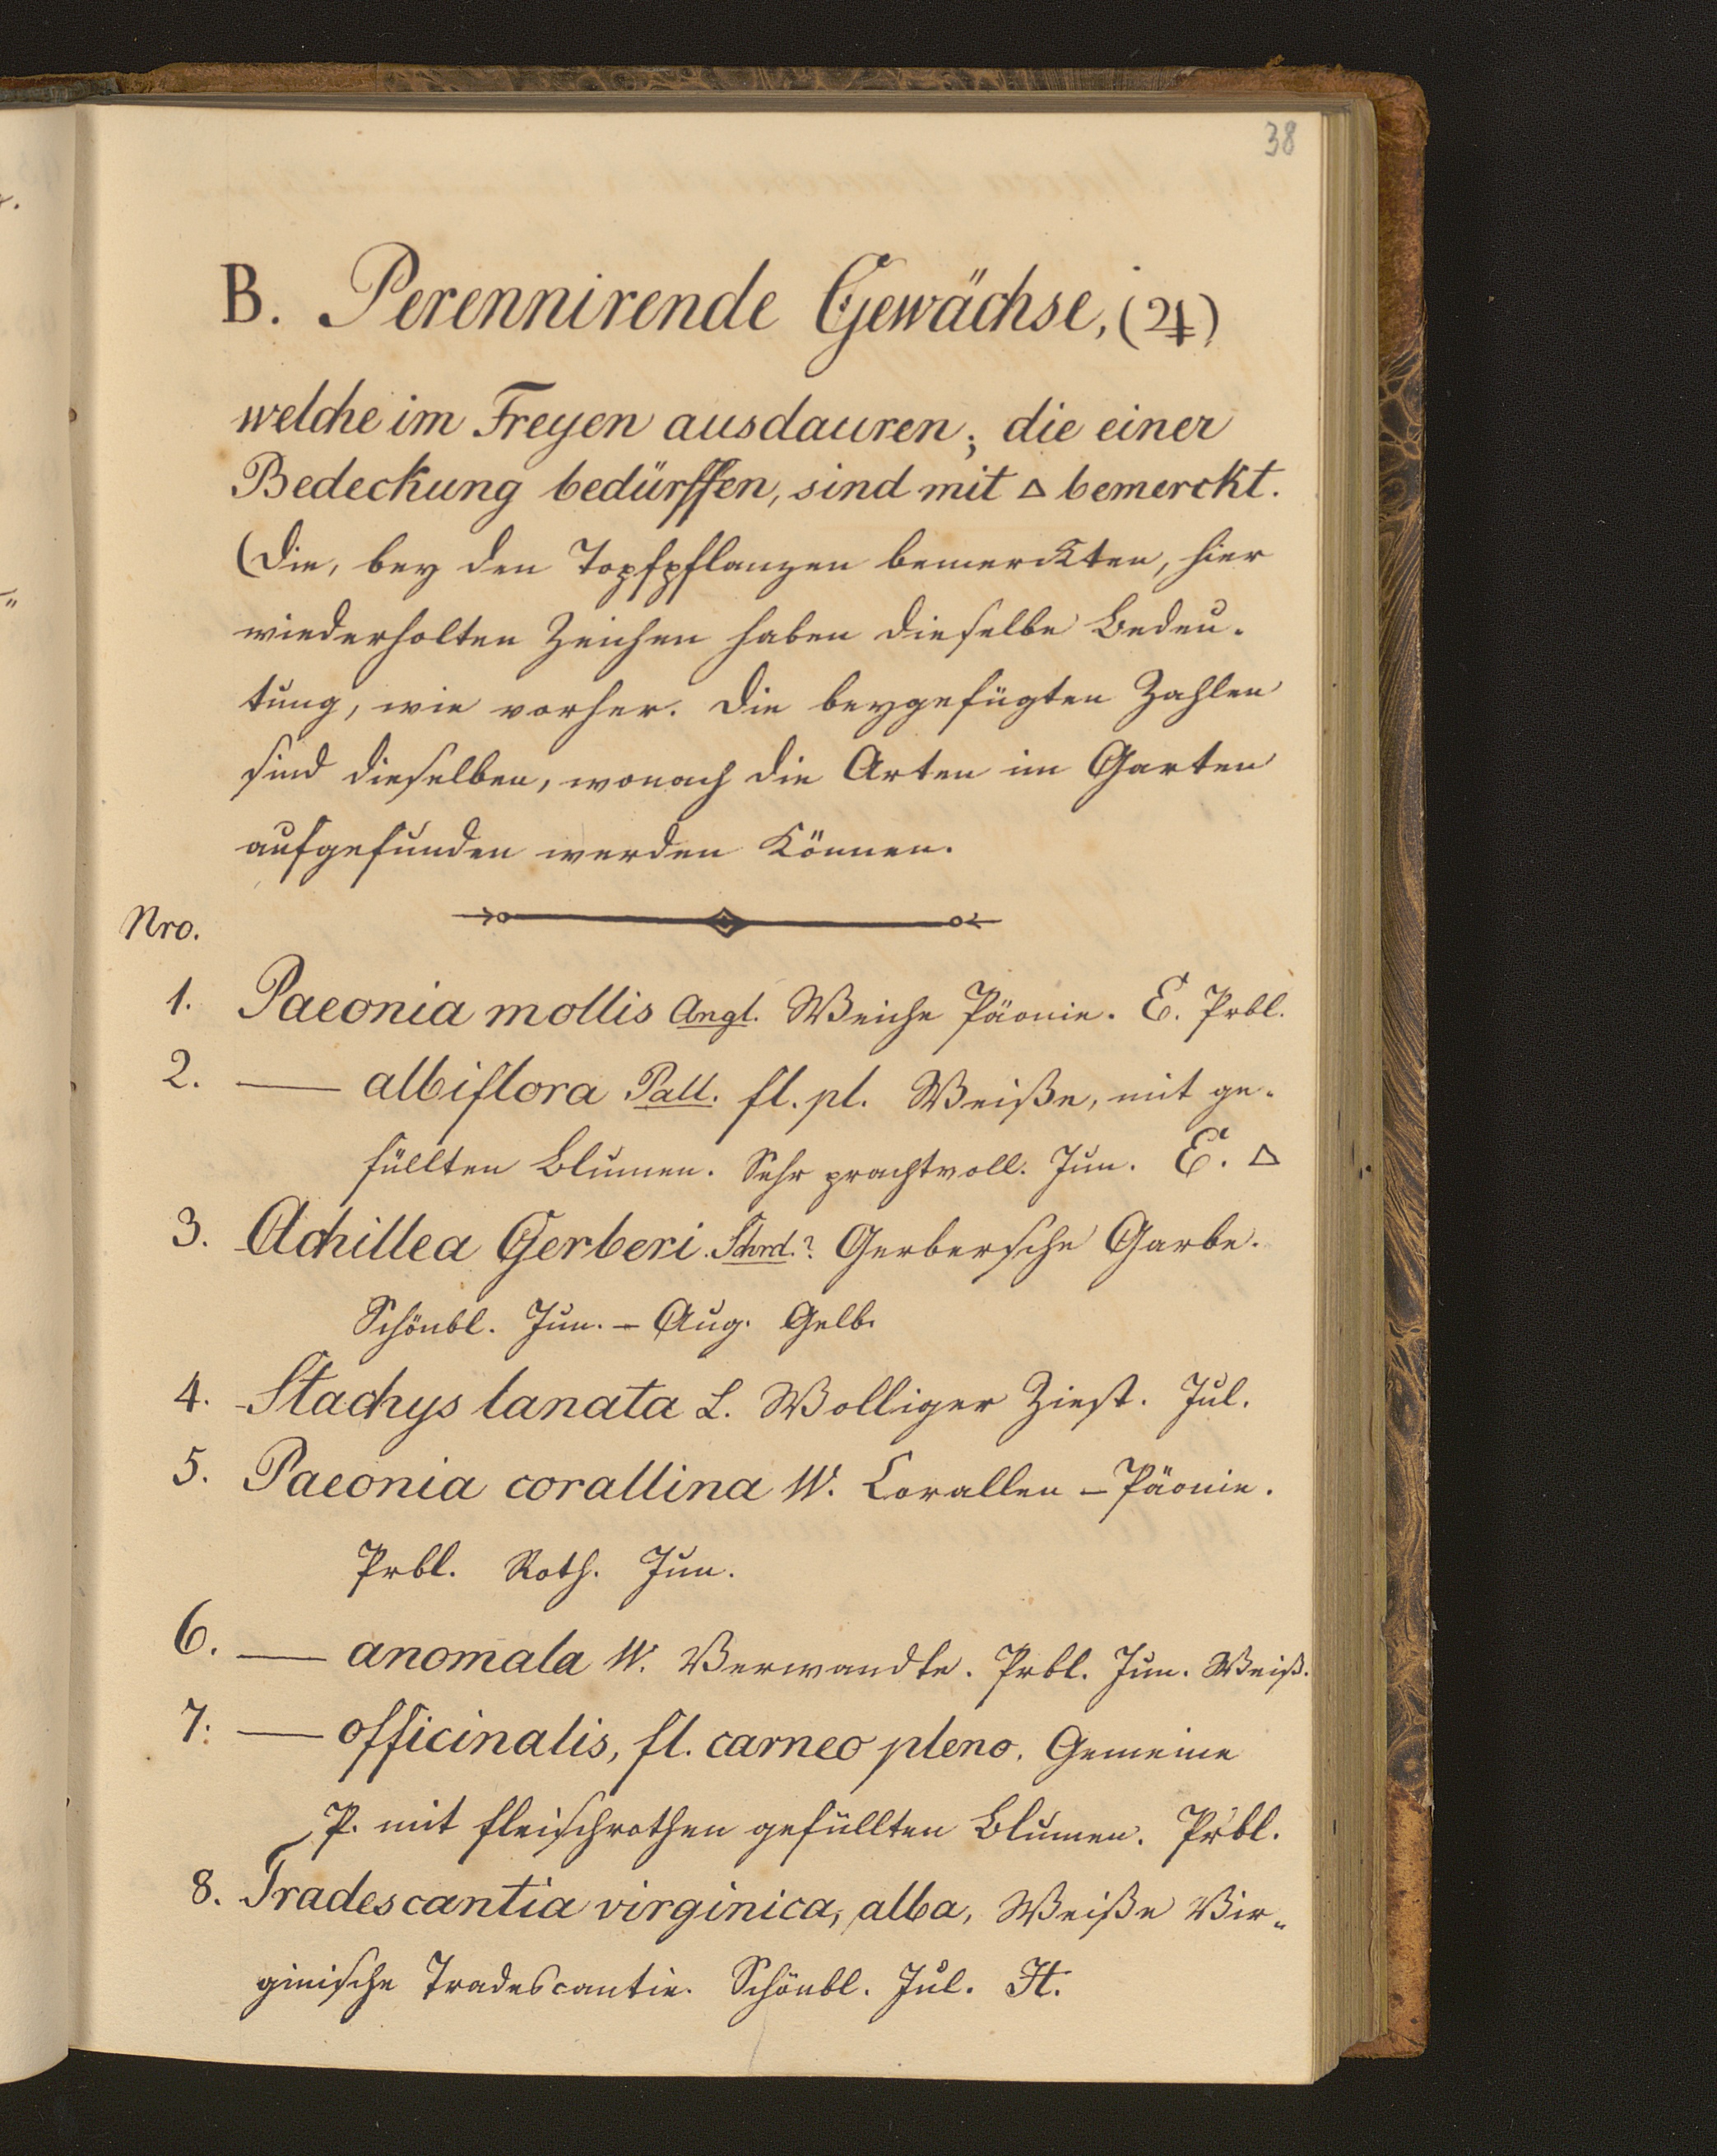 38
B. Perennirende Gewächse, (♃)
welche im Freyen ausdauren; die einer
Bedeckung bedürffen, sind mit ▵ bemerckt.
(Die, bey den Topfpflanzen bemerckten, hier
wiederholten Zeichen haben dieselbe Bedeu-
tung, wie vorher. Die beygefügten Zahlen
sind dieselben, wonach die Arten im Garten
aufgefunden werden können.
Nro.
1. Paeonia mollis Angl. Weiche Päonie. E. Prbl.
2. — albiflora Pall. fl. pl. Weiße, mit ge-
füllten Blumen. Sehr prachtvoll. Jun. E. ▵
3. Achillea Gerberi. Schrd.? Gerbersche Garbe.
Schönbl. Jun. – Aug. Gelb.
4. Stachys lanata L. Wolliger Ziest. Jul.
5. Paeonia corallina W. Corallen – Päonie.
Prbl. Roth. Jun.
6. — anomala W. Verwandte. Prbl. Jun. Weiß.
7. — officinalis, fl. carneo pleno. Gemeine
P. mit fleischrothen gefüllten Blumen. Prbl.
8. Tradescantia virginica, alba, Weiße Vir-
ginische Tradescantie. Schönbl. Jul. H.